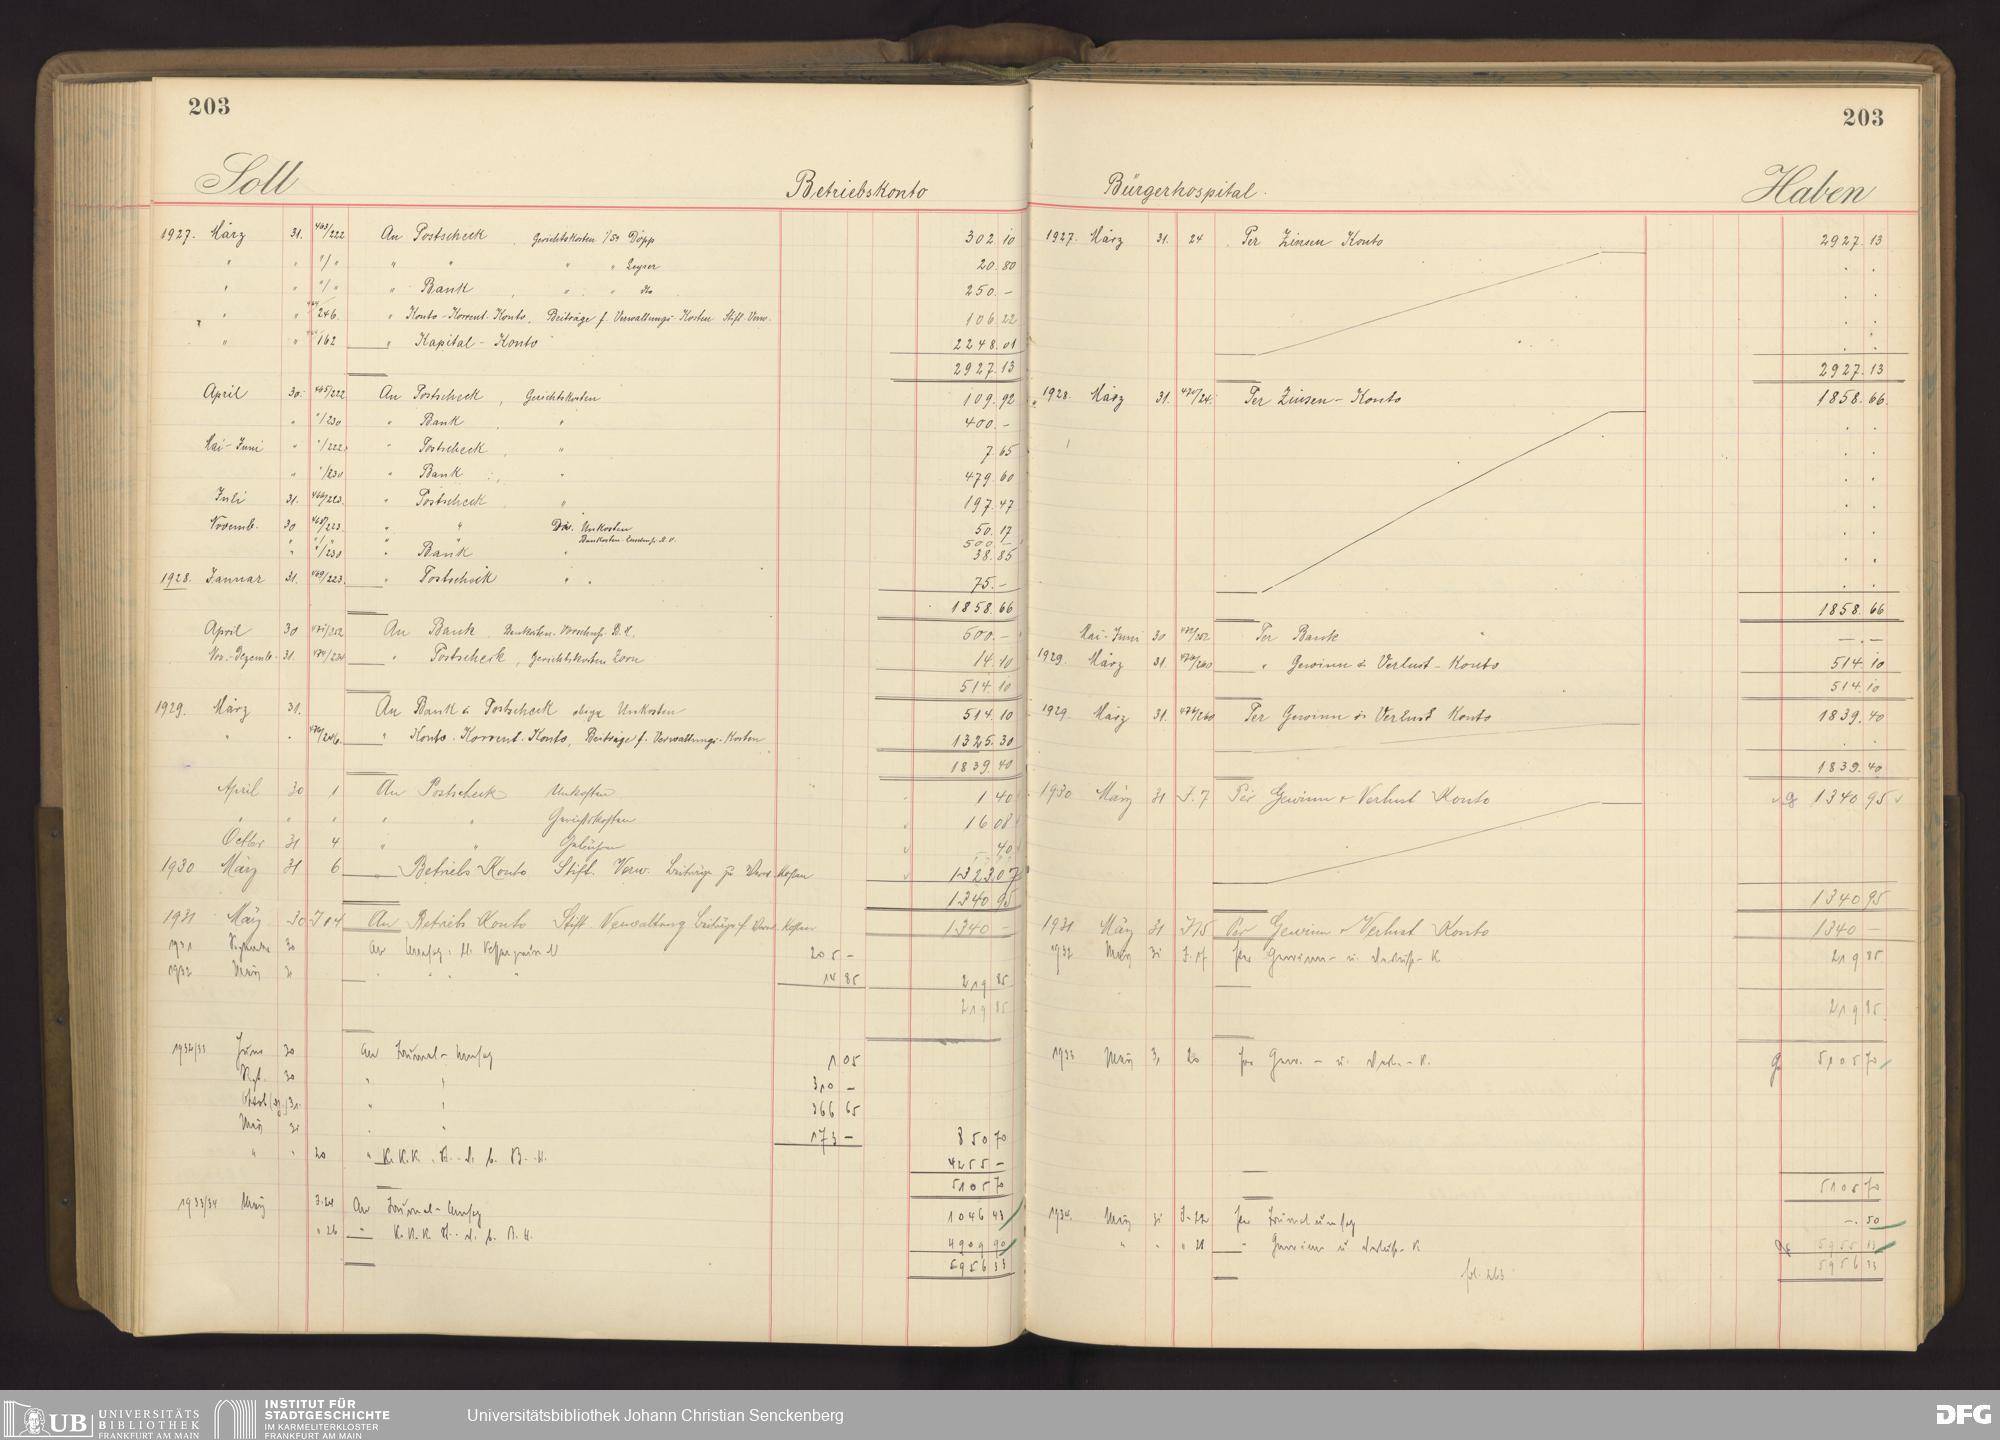 203
Soll Betriebskonto
1927. März 31. 463/222 An Postscheck, Gerichtskosten i/Sa Döpp 302.10
" " "/" " " " " Zeyser 20.80
" " "/" " Bank, " " do 250.-
" " 464/246. " Konto-Korrent-Konto, Beiträge f. Verwaltungs-Kosten Stift. Verw. 106.22
" " 162 " Kapital-Konto 2248.01
2927.13
April 30. 465/222 An Postscheck, Gerichtskosten 109.92
" "/230 " Bank, " 400.-
Mai-Juni " "/222. " Postscheck, " 7.65
" "/230 " Bank " 479.60
Juli 31. 466/223. " Postscheck " 197.47
Novemb. 30 468/223. " " Div. Unkosten 50.17
" "/" " " 500.-
" "/230 " Bank " 38.85
1928. Januar 31. 469/223. " Postscheck " " 75.-
1858.66
April 30 An Bank, 500.-
Nov.-Dezemb. 31. 474/224 " Postscheck, Gerichtskosten Zorn 14.10
514.10
1929. März 31. An Bank & Postscheck obige Unkosten 514.10
" " 476/246. " Konto-Korrent-Konto, Beiträge f. Verwaltungs-Kosten 1325.30
1839.40
April 30 1 An Postscheck Unkosten 1 40
" " " " " Gerichtskosten 16 08
Octbr 31 4 " " Gebühren 40
1930 März 31 6 " Betriebs Konto Stift. Verw. Beiträge zu Verw. Kosten 1323 07
1340 95
1931 März 30 J 14 An Betriebs Konto Stift Verwaltung Beiträge f. Verw. Kosten 1340 -
1931 30 An 205 -
1932 März 31 " " " 14 85 219 85
219 85
1932/33 Juni 30 An Journal- 1 05
Sept. 30 " " 310 -
31. " " 366 65
März 31 " " 173 - 850 70
" " 20 " K.K.K. 4255 -
5105 70
1933/34 März J. 21 An Journal- 1046 43
" 26 " K.K.K. 4909 90
5956 33
203
Bürgerhospital. Haben
1927. März 31. 24 Per Zinsen Konto 2927.13
2927.13
1928. März 31. 470/24. Per Zinsen-Konto 1858.66
1858.66
Mai-Juni 30 Per Bank -.-
1929. März 31. 476/260 " Gewinn & Verlust-Konto 514.10
514.10
1929. März 31. 476/260 Per Gewinn & Verlust Konto 1839.40
1839.40
1930 März 31 J. 7 Per Gewinn & Verlust Konto 1340 95
1340 95
1931 März 31 J 15 Per Gewinn & Verlust Konto 1340 -
1932 März 31 J. 17 per Gewinn- u. Verlust-K 219 85
219 85
1933 März 31 20 per Gew.- u. Verl.-K. 5105 70
5105 70
1934. März 31 J-22 per Journal -.50
" " " 28 " Gewinn u Verlust-K 5955 83
5956 33
fol. 263
UB UNIVERSITÄTS
BIBLIOTHEK
FRANKFURT AM MAIN
INSTITUT FÜR
STADTGESCHICHTE
IM KARMELITERKLOSTER
FRANKFURT AM MAIN
Universitätsbibliothek Johann Christian Senckenberg
DFG